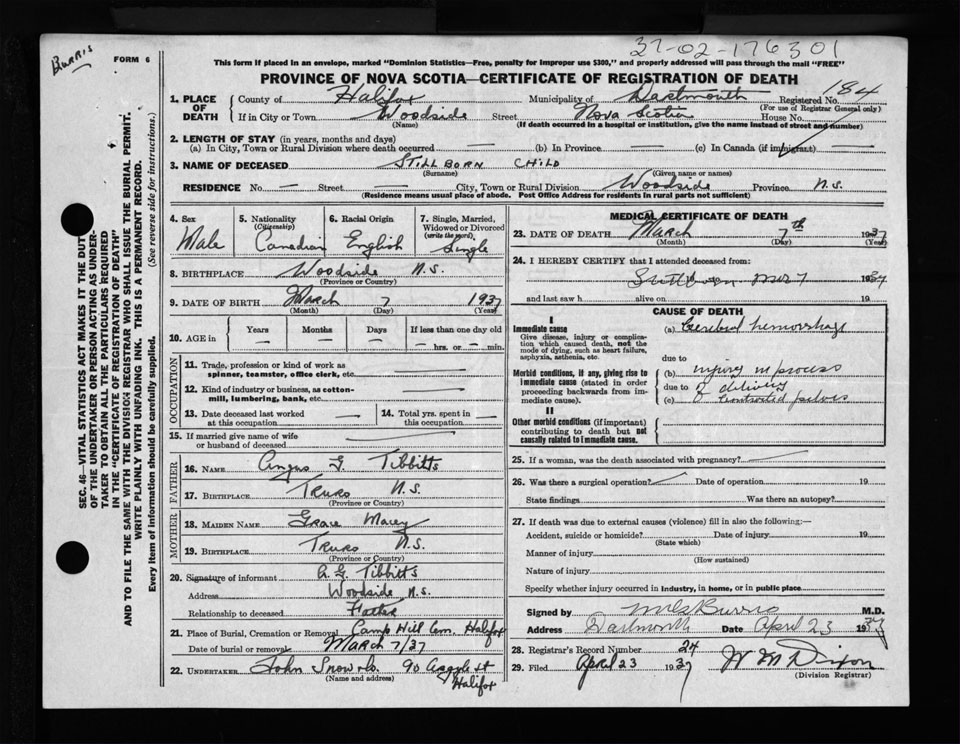 BURRIS
FORM 6
37-02-176301
This form if placed in an envelope, marked "Dominion Statistics—Free, penalty for improper use $300," and properly addressed will pass through the mail "FREE"
PROVINCE OF NOVA SCOTIA—CERTIFICATE OF REGISTRATION OF DEATH
1. PLACE OF DEATH
County of Halifax Municipality of Dartmouth Registered No. 184
(For use of Registrar General only)
If in City or Town Woodside Street Nova Scotia House No.
(Name) (If death occurred in a hospital or institution, give the name instead of street and number)
2. LENGTH OF STAY (in years, months and days)
(a) In City, Town or Rural Division where death occurred — (b) In Province — (c) In Canada (if immigrant) —
3. NAME OF DECEASED STILLBORN CHILD
(Surname) (Given name or names)
RESIDENCE No. — Street — City, Town or Rural Division Woodside Province N.S.
(Residence means usual place of abode. Post Office Address for residents in rural parts not sufficient)
4. Sex Male
5. Nationality (Citizenship) Canadian
6. Racial Origin English
7. Single, Married, Widowed or Divorced (write the word) Single
8. BIRTHPLACE Woodside N.S.
(Province or Country)
9. DATE OF BIRTH March 7 1937
(Month) (Day) (Year)
10. AGE in Years — Months — Days — If less than one day old — hrs. or — min.
OCCUPATION
11. Trade, profession or kind of work as spinner, teamster, office clerk, etc. —
12. Kind of industry or business, as cotton-mill, lumbering, bank, etc. —
13. Date deceased last worked at this occupation — 14. Total yrs. spent in this occupation —
15. If married give name of wife or husband of deceased —
FATHER
16. NAME Angus G. Tibbitts
17. BIRTHPLACE Truro N.S.
(Province or Country)
MOTHER
18. MAIDEN NAME Grace Macey
19. BIRTHPLACE Truro N.S.
(Province or Country)
20. Signature of informant A.G. Tibbitts
Address Woodside N.S.
Relationship to deceased Father
21. Place of Burial, Cremation or Removal Camp Hill Cem. Halifax
Date of burial or removal March 7/37
22. UNDERTAKER John Snow & Co. 90 Argyle St
(Name and address) Halifax
MEDICAL CERTIFICATE OF DEATH
23. DATE OF DEATH March 7th 1937
(Month) (Day) (Year)
24. I HEREBY CERTIFY that I attended deceased from:
Stillborn Mar 7 1937
and last saw h alive on 19
CAUSE OF DEATH
I
Immediate cause
Give disease, injury or complication which caused death, not the mode of dying, such as heart failure, asphyxia, asthenia, etc.
(a) Cerebral hemorrhage
due to
Morbid conditions, if any, giving rise to immediate cause (stated in order proceeding backwards from immediate cause).
(b) injury in process
due to of delivery
(c) contracted pelvis
II
Other morbid conditions (if important) contributing to death but not causally related to immediate cause.
25. If a woman, was the death associated with pregnancy?
26. Was there a surgical operation? Date of operation 19
State findings Was there an autopsy?
27. If death was due to external causes (violence) fill in also the following:—
Accident, suicide or homicide? Date of injury 19
(State which)
Manner of injury
(How sustained)
Nature of injury
Specify whether injury occurred in industry, in home, or in public place
Signed by Burris M.D.
Address Dartmouth Date April 23 1937
28. Registrar's Record Number 24
29. Filed April 23 1937 W M Dixon
(Division Registrar)
SEC. 46—VITAL STATISTICS ACT MAKES IT THE DUTY
OF THE UNDERTAKER OR PERSON ACTING AS UNDER-
TAKER TO OBTAIN ALL THE PARTICULARS REQUIRED
IN THE "CERTIFICATE OF REGISTRATION OF DEATH"
AND TO FILE THE SAME WITH THE DIVISION REGISTRAR WHO SHALL ISSUE THE BURIAL PERMIT.
WRITE PLAINLY WITH UNFADING INK. THIS IS A PERMANENT RECORD.
Every item of information should be carefully supplied. (See reverse side for instructions.)